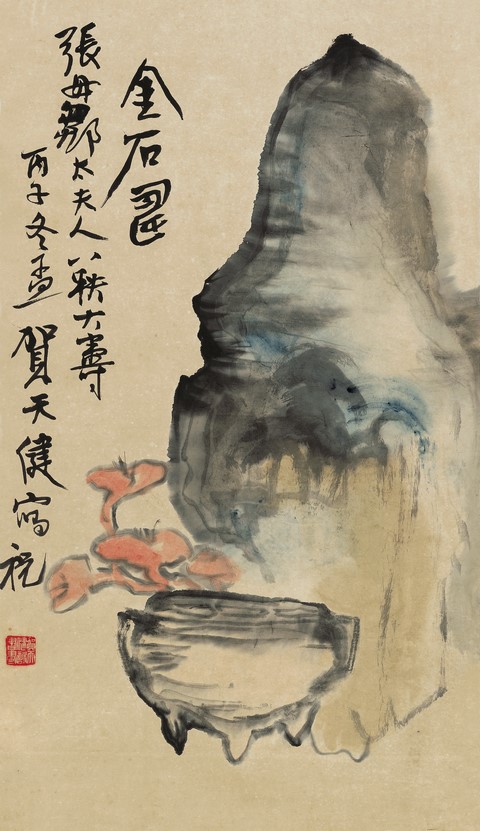 金石
張母鄒太夫人八秩大壽
丙子冬孟 賀天健寫祝